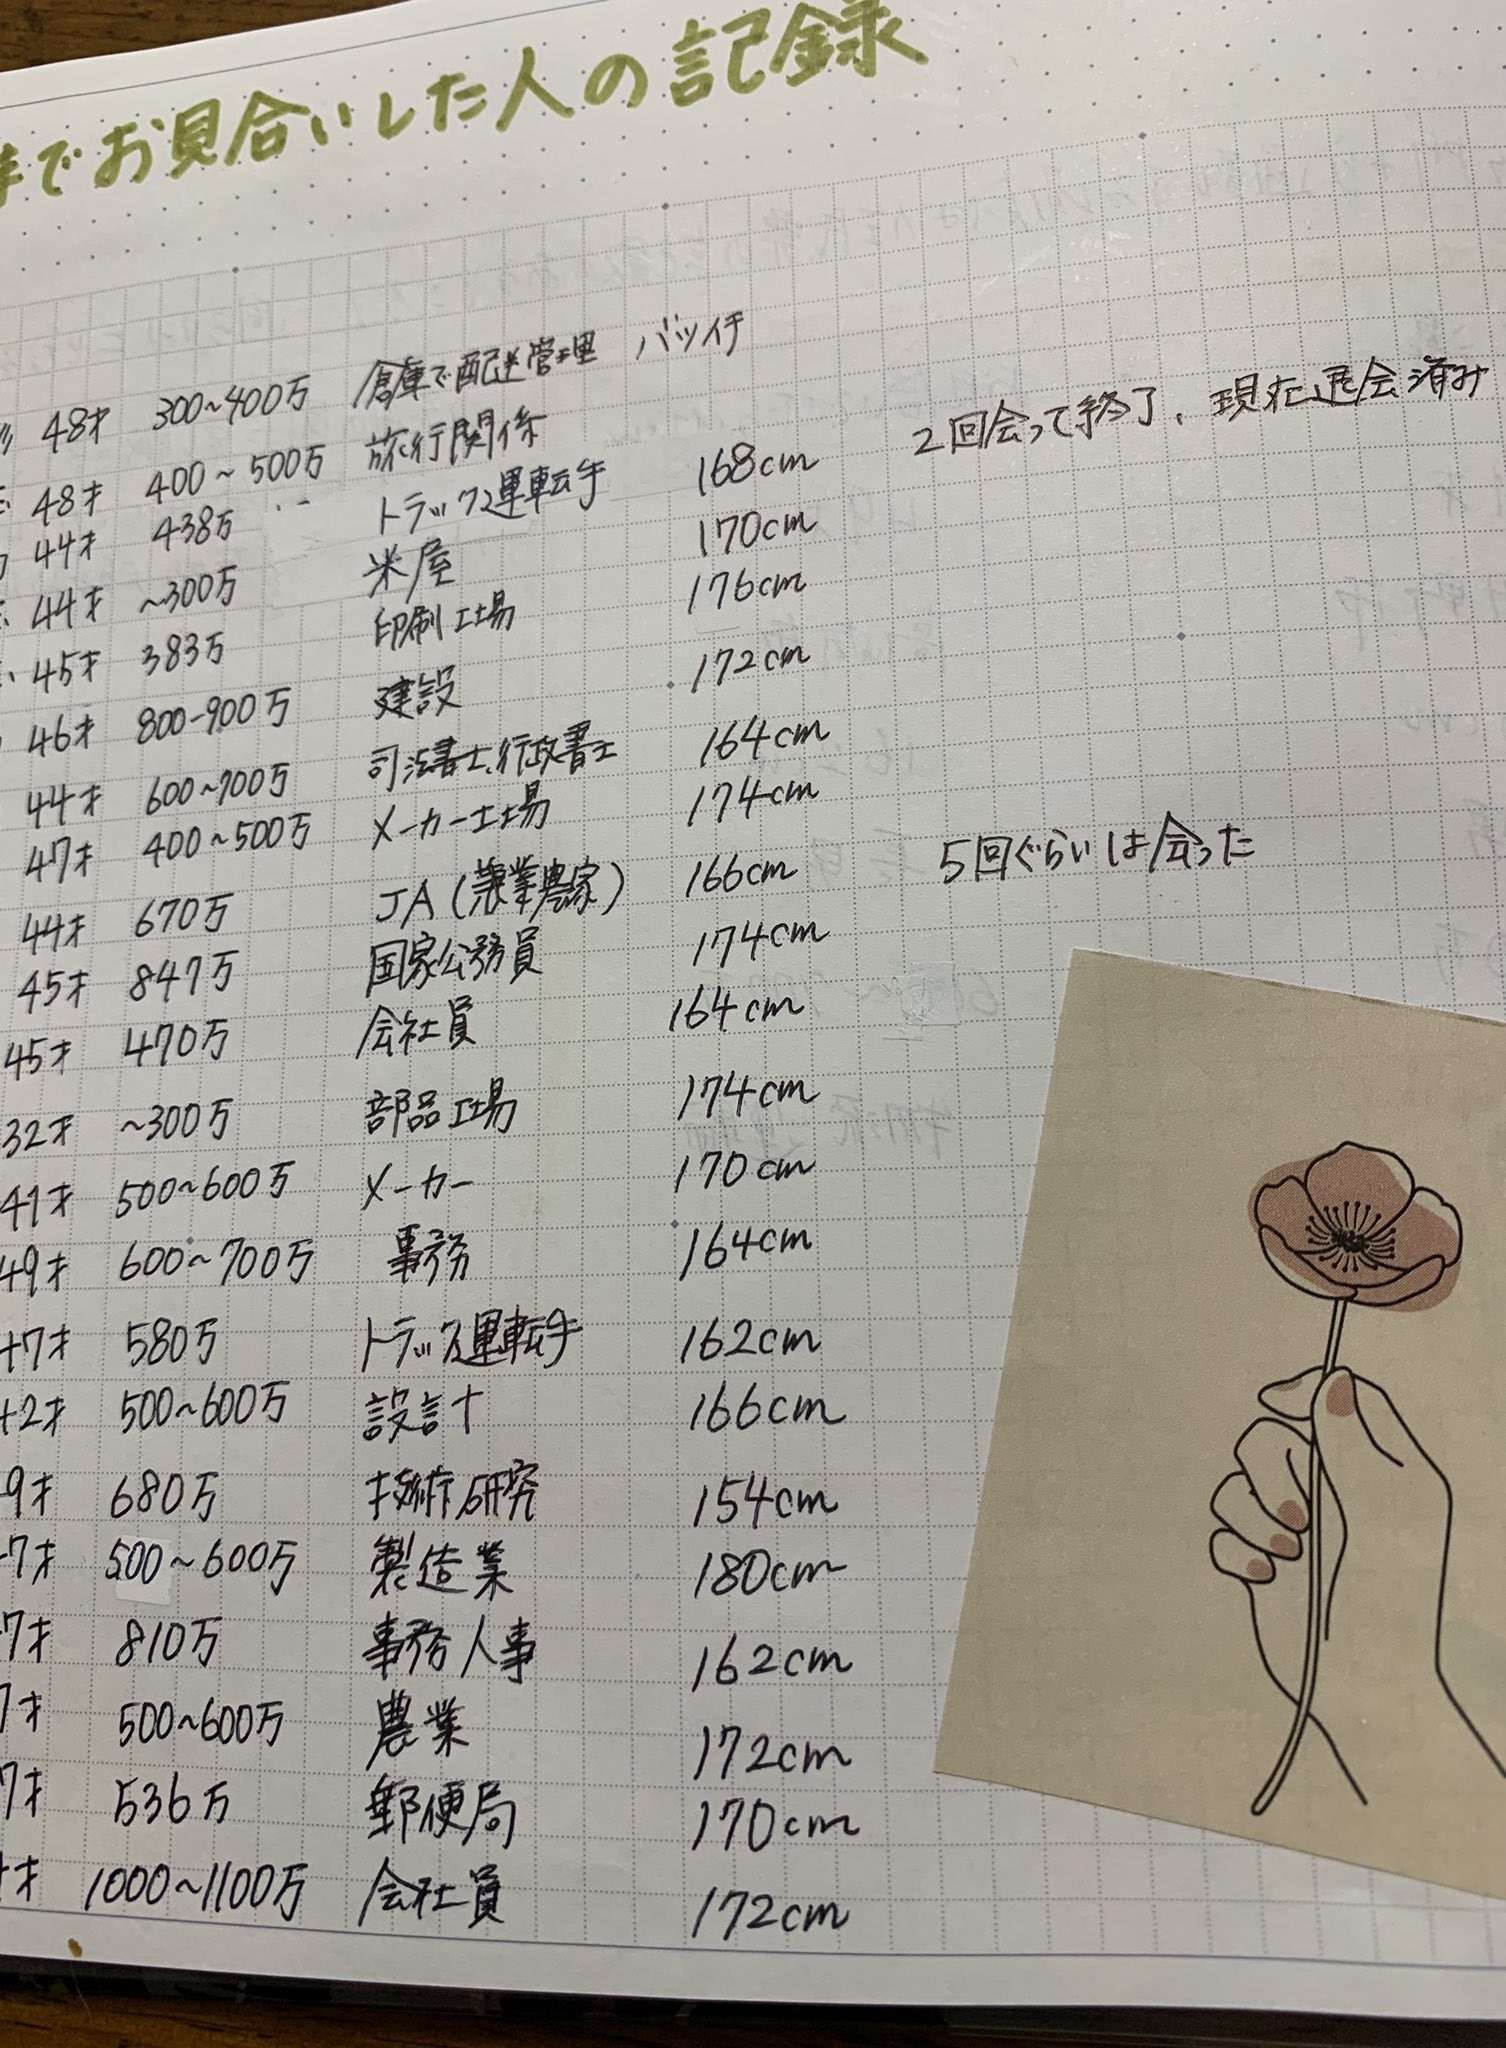 でお見合いした人の記録
48才 300~400万 倉庫で配送管理 バツイチ
48才 400~500万 旅行関係 168cm 2回会って終了、現在退会済み
44才 438万 トラック運転手 170cm
44才 ~300万 米屋 176cm
45才 383万 印刷工場 172cm
46才 800-900万 建設 164cm
44才 600~700万 司法書士、行政書士 174cm
47才 400~500万 メーカー工場 166cm 5回ぐらいは会った
44才 670万 JA(兼業農家) 174cm
45才 847万 国家公務員 164cm
45才 470万 会社員 174cm
32才 ~300万 部品工場 170cm
41才 500~600万 メーカー 164cm
49才 600~700万 事務 162cm
7才 580万 トラック運転手 166cm
2才 500~600万 設計 154cm
9才 680万 技術研究 180cm
7才 500~600万 製造業 162cm
7才 810万 事務人事 172cm
7才 500~600万 農業 170cm
7才 536万 郵便局 172cm
才 1000~1100万 会社員